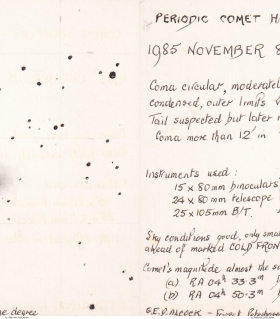 PERIODIC COMET H
1985 NOVEMBER 8
Coma circular, moderatel
condensed, outer limits
Tail suspected but later
Coma more than 12' in
Instruments used :
15 x 80mm binoculars
24 x 80mm telescope
25 x 105mm B/T.
Sky conditions good, only smal
ahead of marked COLD FRON
Comet's magnitude almost the sa
(a) RA 04h 33.3m
(b) RA 04h 50.3m
ne degree
G.E.D. ALCOCK